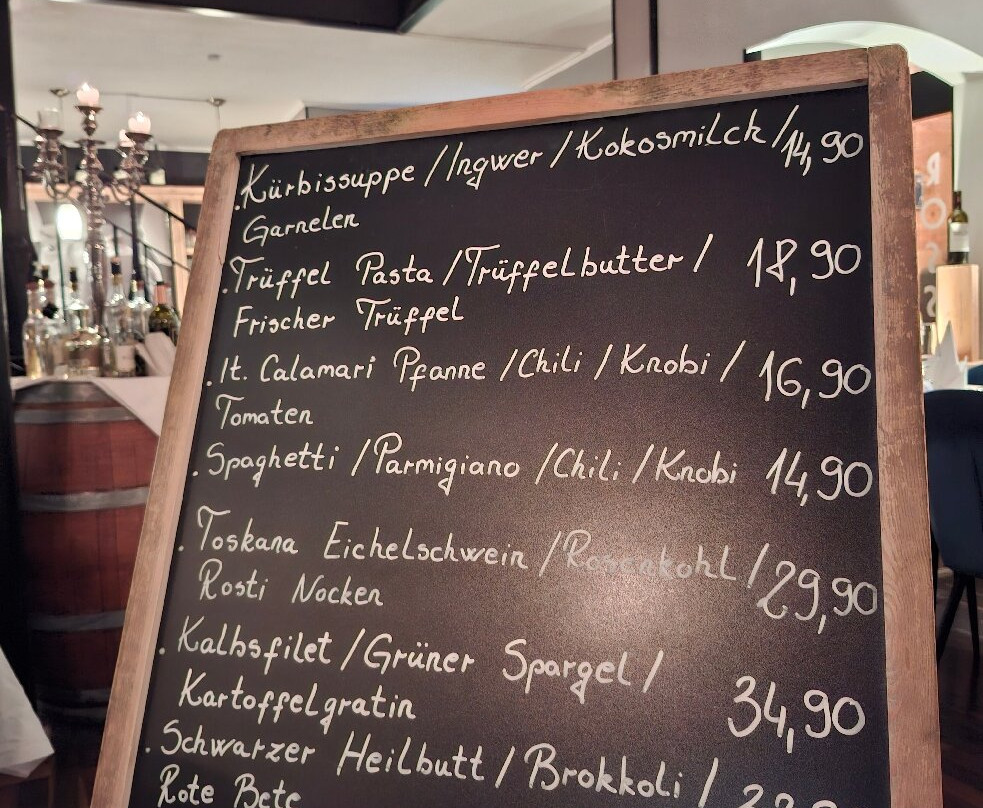 .Kürbissuppe /Ingwer /Kokosmilch/ 14,90
Garnelen
.Trüffel Pasta /Trüffelbutter / 18,90
Frischer Trüffel
.It. Calamari Pfanne /Chili /Knobi / 16,90
Tomaten
.Spaghetti /Parmigiano /Chili /Knobi 14,90
.Toskana Eichelschwein /Rosenkohl / 29,90
Rosti Nocken
.Kalbsfilet /Grüner Spargel /
Kartoffelgratin 34,90
.Schwarzer Heilbutt / Brokkoli /
Rote Bete